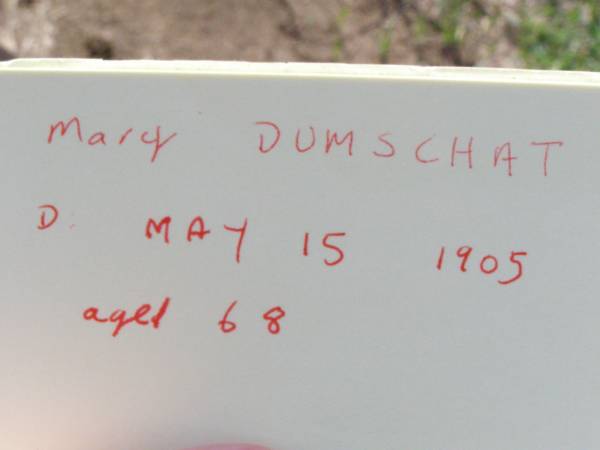 Mary DUMSCHAT
D. MAY 15 1905
aged 68